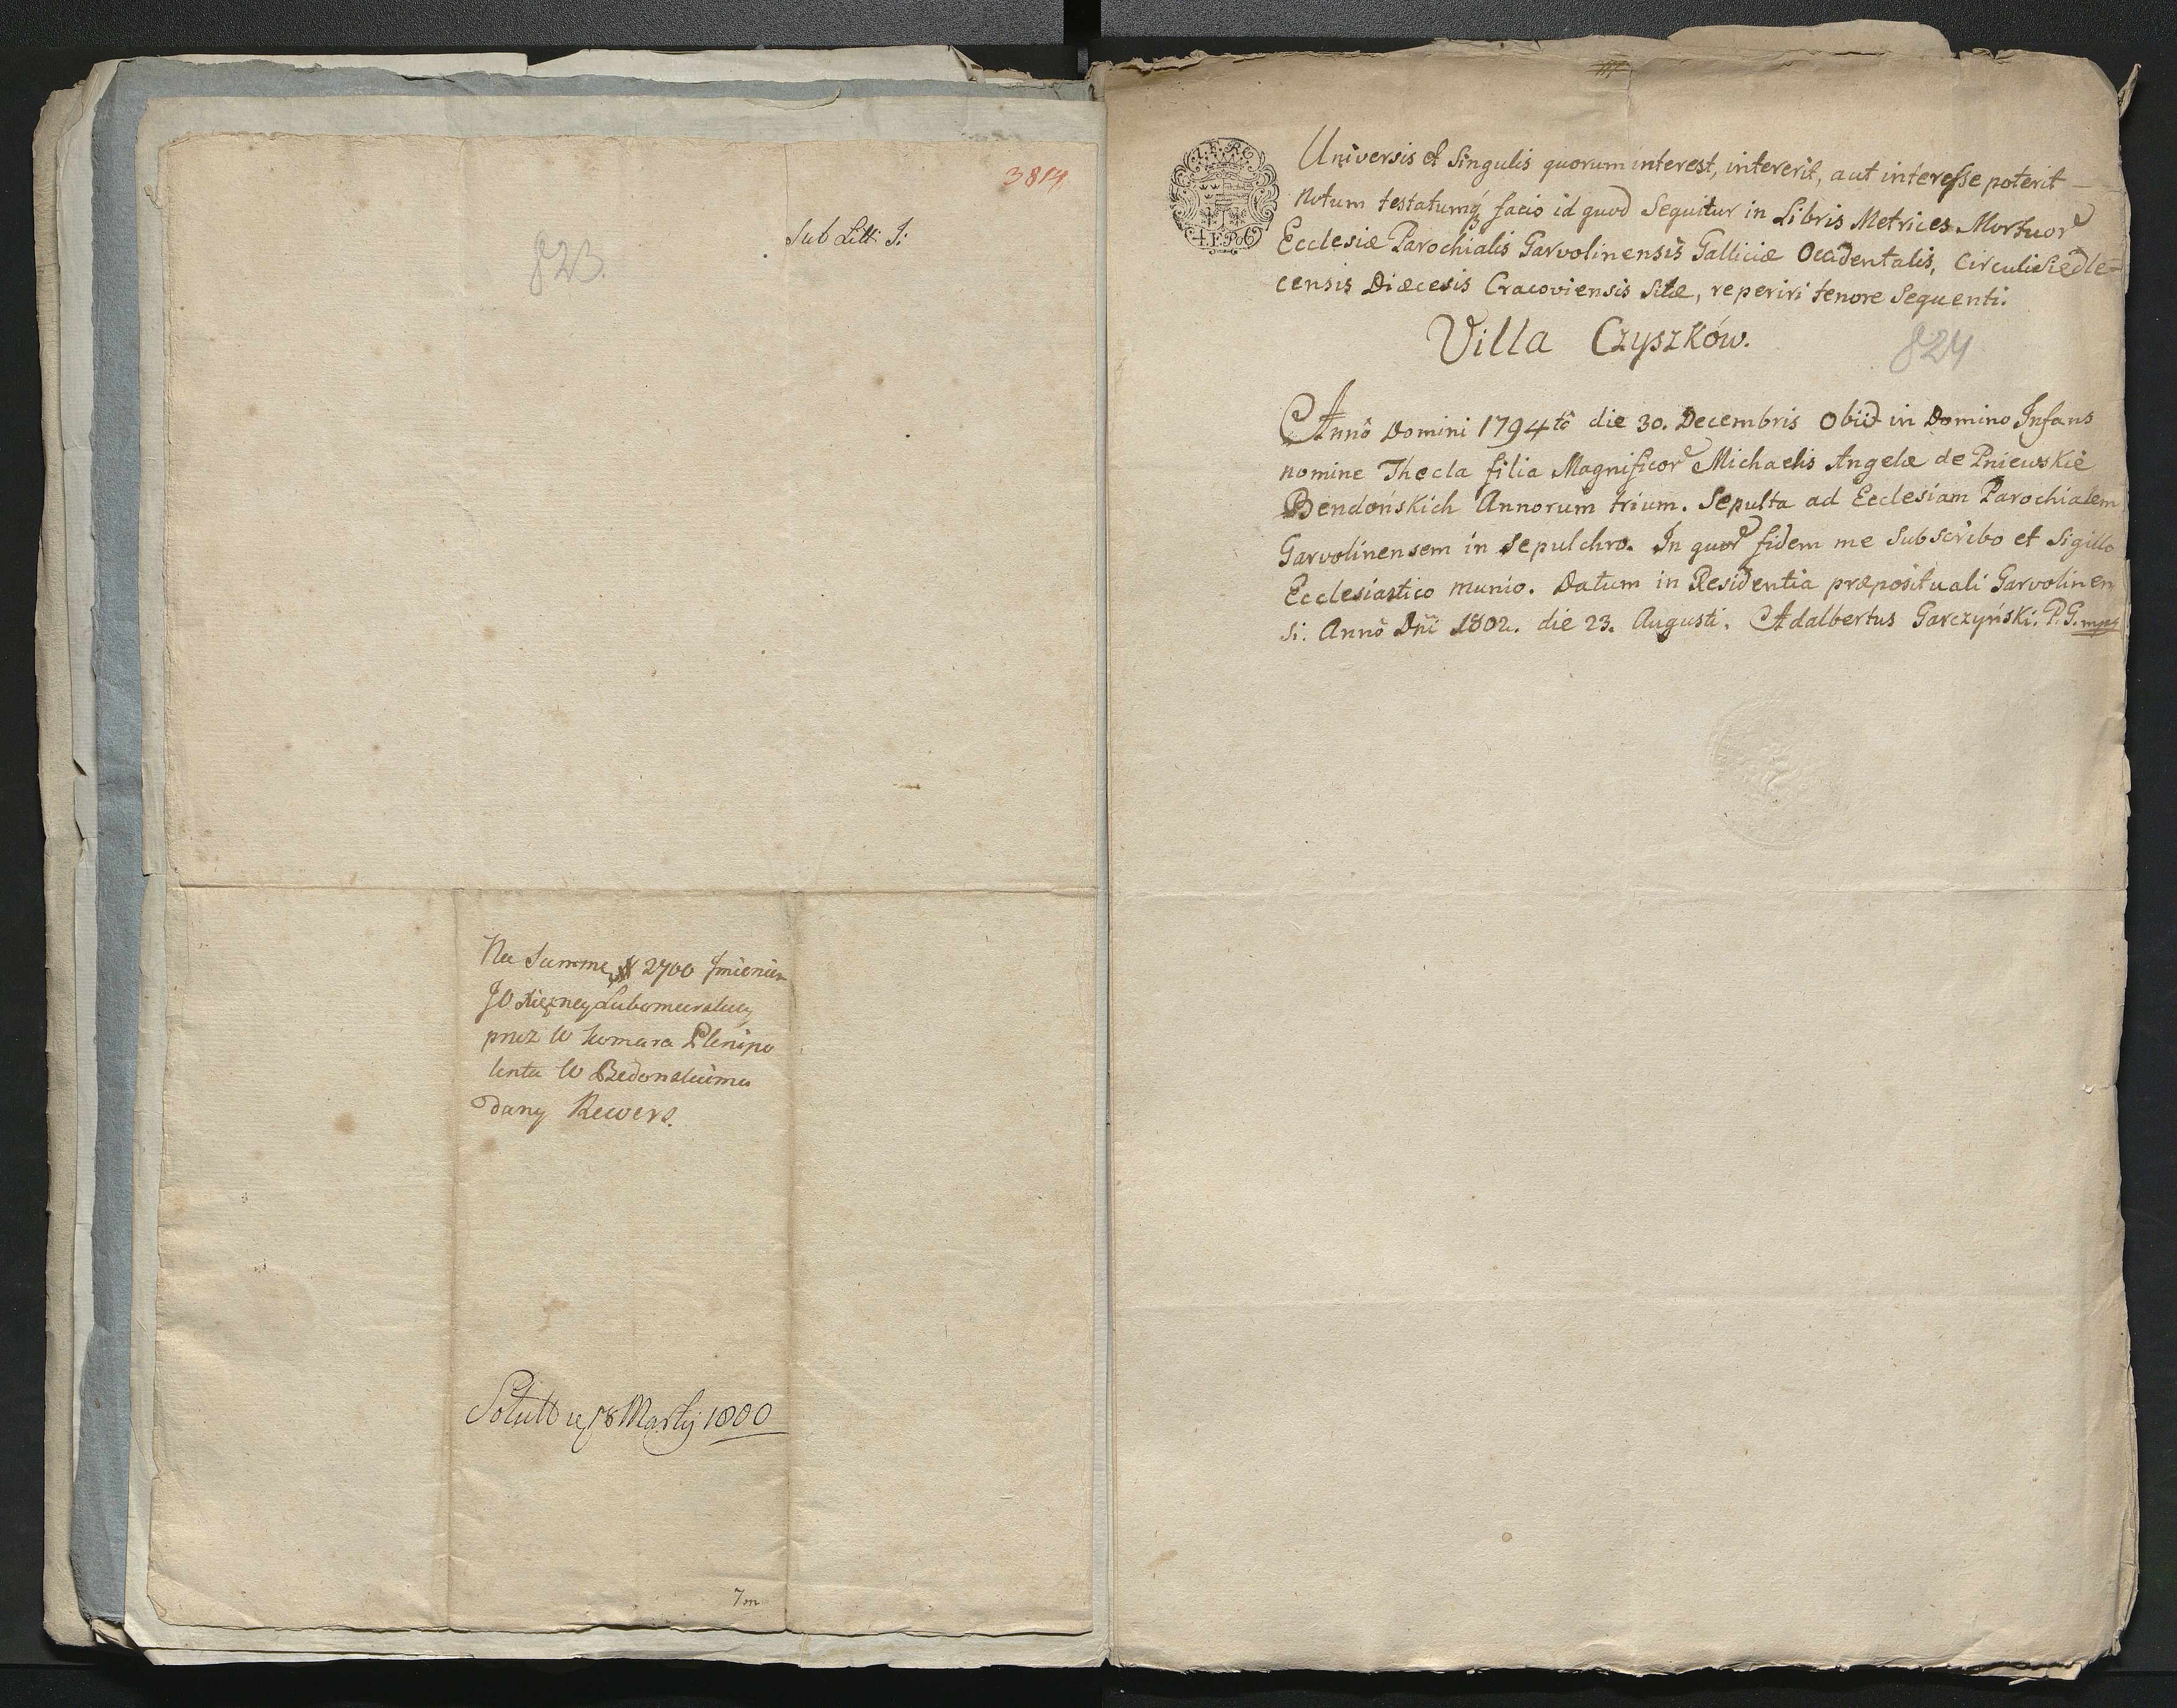 3814
Sub Litt: I:
823.
Na Summę # 2700 Imieniem
JO Xiężney Lubomirskiey
przez W Komara Plenipo
tenta W Będonskiemu
dany Rewers.
18 Martij 1800
7m
I.F.R.C
4.F.P.G
Universis et Singulis quorum interest, intererit, aut interesse poterit —
Notum testatumq facio id quod Sequitur in Libris Metrices Mortuor
Ecclesiæ Parochialis Garvolinensis Galliciæ Occidentalis, Circuli Siedle=
censis Diæcesis Cracoviensis Sitæ, reperiri tenore Sequenti.
Villa Czyszków.
824
Annô Domini 1794tô die 30. Decembris Obiit in Domino Infans
nomine Thecla filia Magnificor Michaelis Angelæ de Pniewskie
Bendońskich Annorum trium. Sepulta ad Ecclesiam Parochialem
Garvolinensem in Sepulchro. In quor fidem me Subscribo et Sigillo
Ecclesiastico munio. Datum in Residentia præpositurali Garvolinen
si. Annô Dñi 1802. die 23. Augusti. Adalbertus Garczyński. P. G. mpp